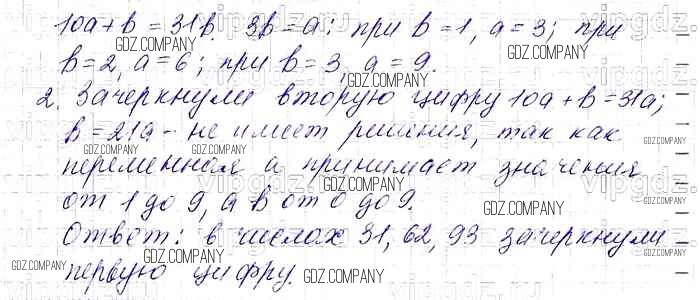 10a + b = 31b. 3b = a: при b = 1, a = 3; при
b = 2, a = 6; при b = 3, a = 9.
2. Зачеркнули вторую цифру 10a + b = 31a;
b = 21a - не имеет решения, так как
переменная a принимает значения
от 1 до 9, а b от 0 до 9.
Ответ: в числах 31, 62, 93 зачеркнули
первую цифру.
GDZ.COMPANY
GDZ.COMPANY
GDZ.COMPANY
GDZ.COMPANY
GDZ.COMPANY
GDZ.COMPANY
GDZ.COMPANY
GDZ.COMPANY
GDZ.COMPANY
GDZ.COMPANY
GDZ.COMPANY
GDZ.COMPANY